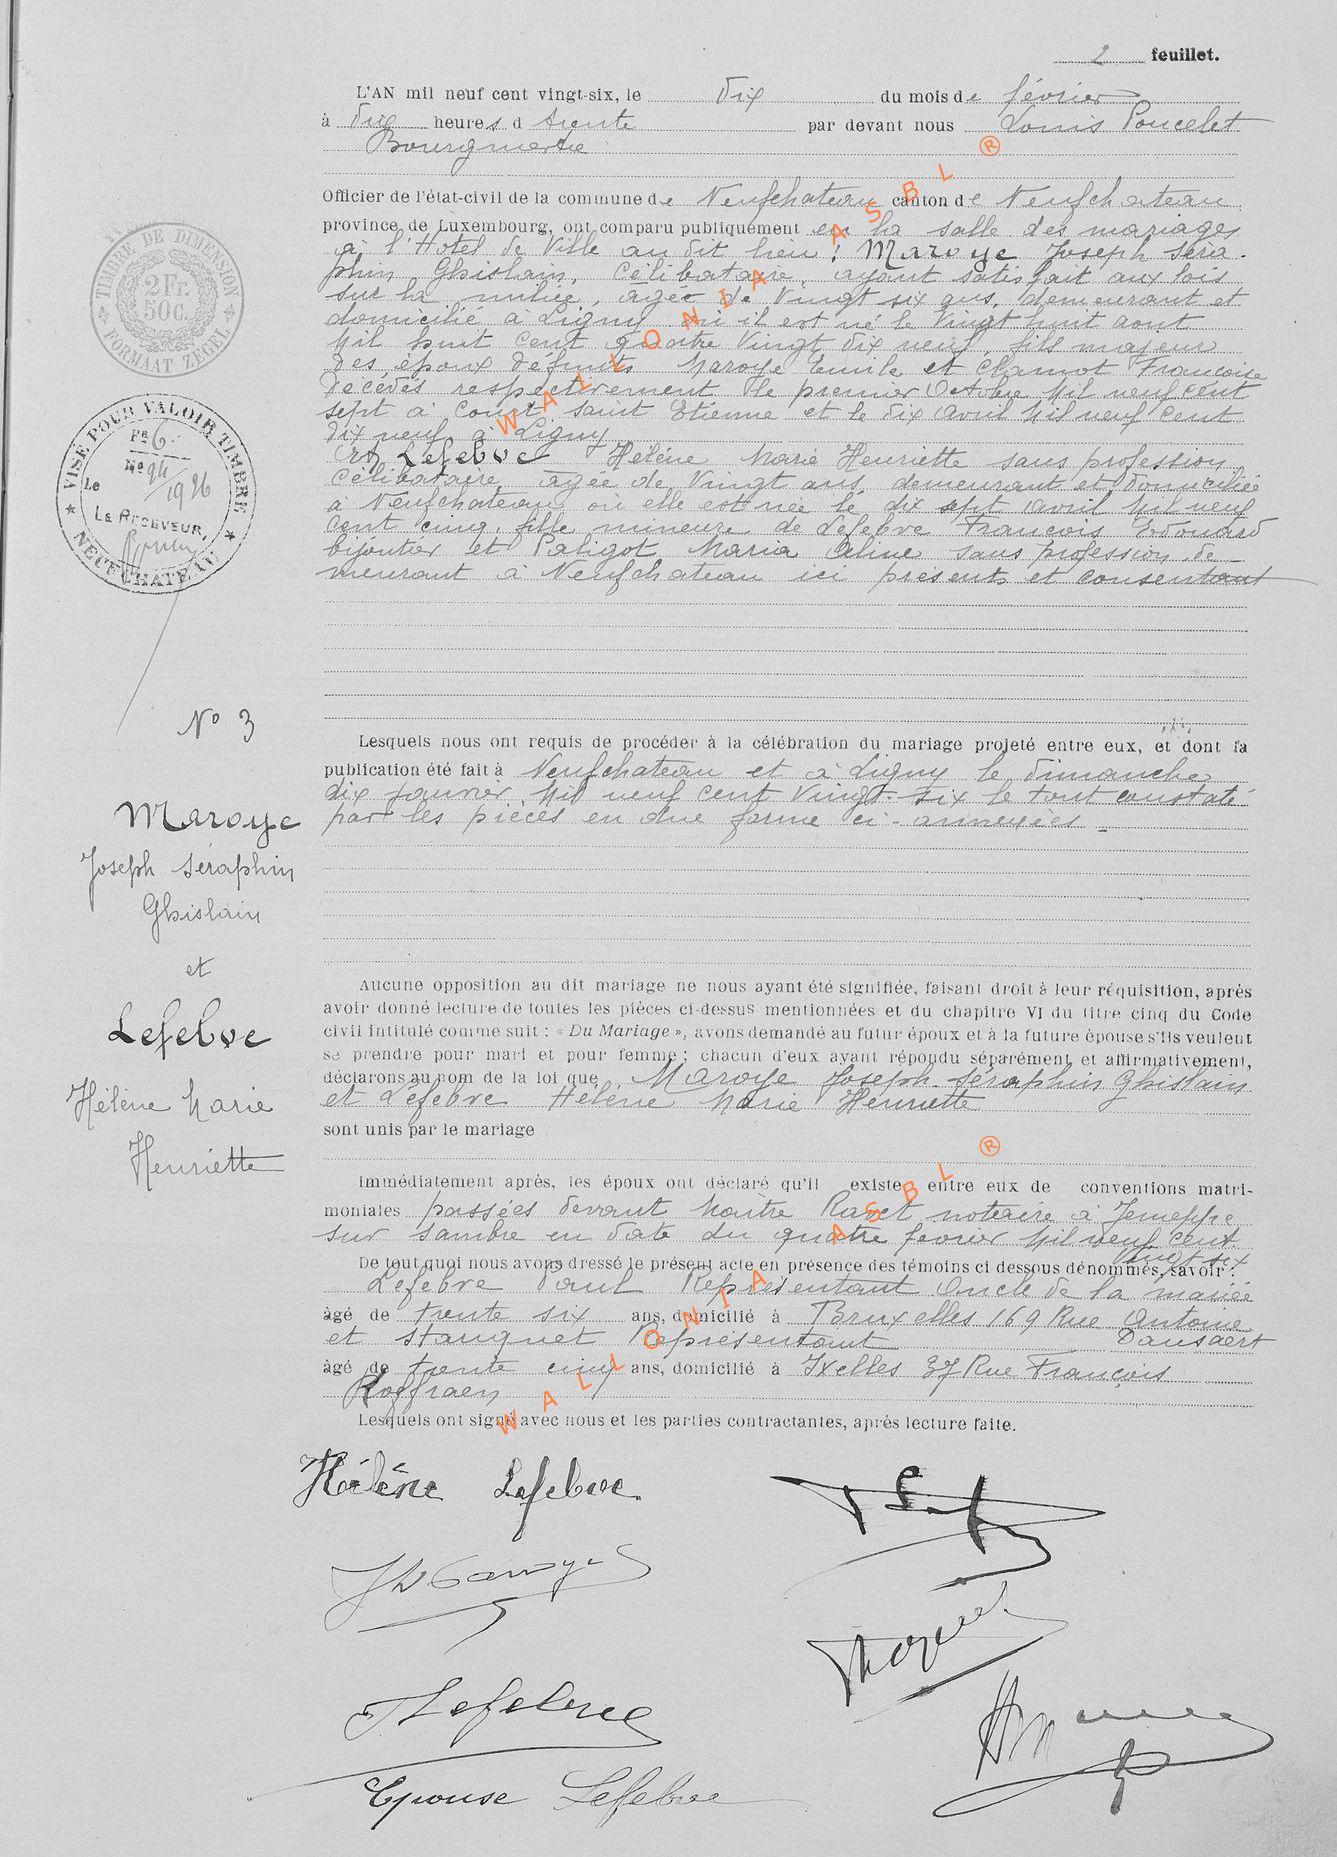 2 feuillet.
L'AN mil neuf cent vingt-six, le dix du mois de février
à dix heures d trente par devant nous Louis Poncelet
Bourgmestre
Officier de l'état-civil de la commune de Neufchateau canton de Neufchateau
province de Luxembourg, ont comparu publiquement en la salle des mariages
à l'Hotel de Ville au dit lieu : Maroye Joseph Séra-
phin Ghislain, célibataire, ayant satisfait aux lois
sur la milice, âgée de vingt six ans, demeurant et
domicilié à Ligny où il est né le vingt huit aout
Mil huit cent quatre vingt dix neuf, fils majeur
des époux défunts Maroye Emile et Clamot Françoise
décédés respectivement le premier Octobre Mil neuf cent
sept à Court Saint Etienne et le dix avril Mil neuf cent
dix neuf à Ligny
Et Lefebve Hélène Marie Henriette sans profession
célibataire, âgée de vingt ans, demeurant et domiciliée
à Neufchateau où elle est née le dix sept avril Mil neuf
cent cinq, fille mineure de Lefebve François Edouard
bijoutier et Paligot Maria Aline sans profession de-
meurant à Neufchateau ici présents et consentant
Lesquels nous ont requis de procéder à la célébration du mariage projeté entre eux, et dont la
publication été fait à Neufchateau et à Ligny le dimanche
dix janvier Mil neuf cent vingt-six le tout constaté
par les pièces en due forme ci-annexées
Aucune opposition au dit mariage ne nous ayant été signifiée, faisant droit à leur réquisition, après
avoir donné lecture de toutes les pièces ci-dessus mentionnées et du chapitre VI du titre cinq du Code
civil intitulé comme suit : « Du Mariage », avons demandé au futur époux et à la future épouse s'ils veulent
se prendre pour mari et pour femme ; chacun d'eux ayant répondu séparément et affirmativement,
déclarons au nom de la loi que Maroye Joseph Séraphin Ghislain
et Lefebve Hélène Marie Henriette
sont unis par le mariage
Immédiatement après, les époux ont déclaré qu'il existe entre eux de conventions matri-
moniales passées devant Maître Ravet notaire à Jemeppe
sur Sambre en date du quatre fevrier Mil neuf cent
vingt-six
De tout quoi nous avons dressé le présent acte en présence des témoins ci dessous dénommés, savoir :
Lefebve Paul Représentant oncle de la mariée
âgé de trente six ans, domicilié à Bruxelles 169 Rue Antoine
Dansaert
et Stauquet Représentant
âgé de trente cinq ans, domicilié à Ixelles 37 Rue François
Roffiaen
Lesquels ont signé avec nous et les parties contractantes, après lecture faite.
Hélène Lefebve
Maroye
Lefebve
Epouse Lefebve
TIMBRE DE DIMENSION
2 Fr.
50 c.
FORMAAT ZEGEL
VISÉ POUR VALOIR TIMBRE
Fo 6
No 94
Le 1926
LE RECEVEUR,
NEUFCHATEAU
No 3
Maroye
Joseph Séraphin
Ghislain
et
Lefebve
Hélène Marie
Henriette
WALLONIA ASBL ®
WALLONIA ASBL ®